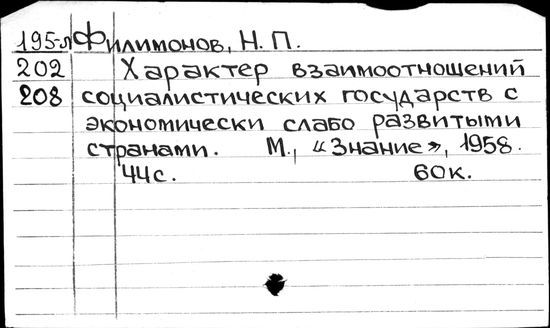 195-л Филимонов, Н. П.
202 Характер взаимоотношений
208 социалистических государств с
экономически слабо развитыми
странами. М., «Знание», 1958.
44 с. 60 к.